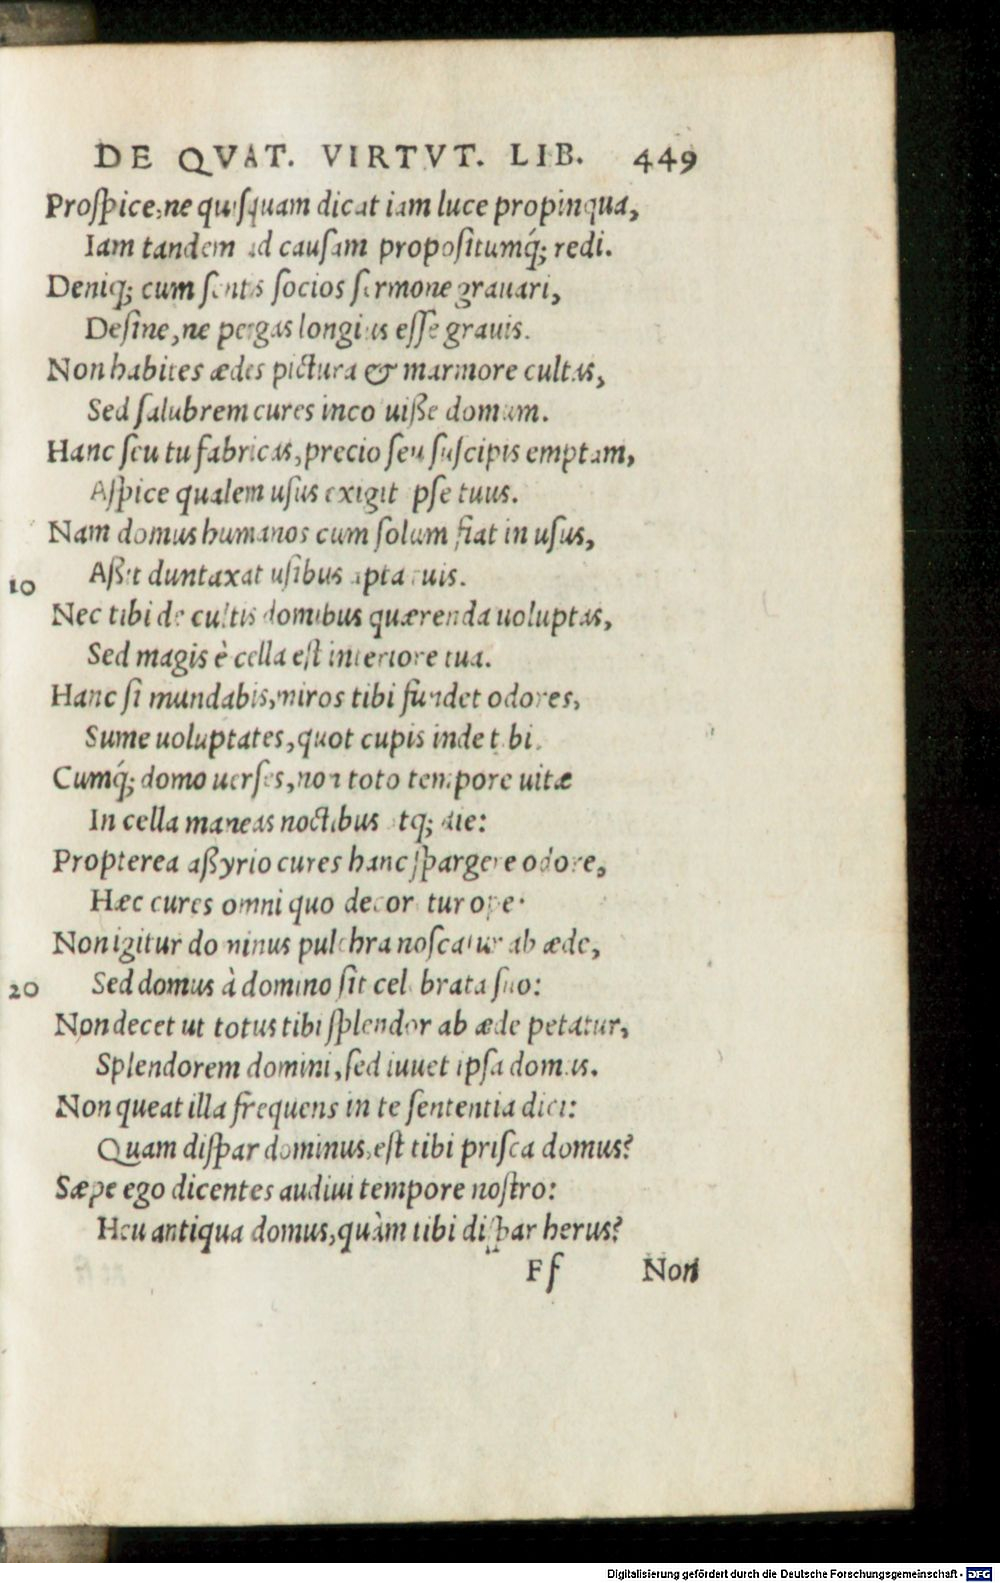 DE QVAT. VIRTVT. LIB. 449
Proſpice, ne quiſquam dicat iam luce propinqua,
Iam tandem ad cauſam propoſitumq́; redi.
Deniq; cum ſentis ſocios ſermone grauari,
Deſine, ne pergas longius eſſe grauis.
Non habites ædes pictura & marmore cultas,
Sed ſalubrem cures incoluiße domum.
Hanc ſeu tu fabricas, precio ſeu ſuſcipis emptam,
Aſpice qualem uſus exigit ipſe tuus.
Nam domus humanos cum ſolum fiat in uſus,
10 Aßit duntaxat uſibus apta tuis.
Nec tibi de cultis domibus quærenda uoluptas,
Sed magis è cella eſt interiore tua.
Hanc ſi mundabis, miros tibi fundet odores,
Sume uoluptates, quot cupis inde tibi.
Cumq́; domo uerſes, non toto tempore uitæ
In cella maneas noctibus atq; die:
Propterea aßyrio cures hanc ſpargere odore,
Hæc cures omni quo decoretur ope.
Non igitur dominus pulchra noſcatur ab æde,
20 Sed domus à domino ſit celebrata ſuo:
Non decet ut totus tibi ſplendor ab æde petatur,
Splendorem domini, ſed iuuet ipſa domus.
Non queat illa frequens in te ſententia dici:
Quam diſpar dominus, eſt tibi priſca domus?
Sæpe ego dicentes audiui tempore noſtro:
Heu antiqua domus, quàm tibi diſpar herus?
Ff Non
Digitalisierung gefördert durch die Deutsche Forschungsgemeinschaft - DFG